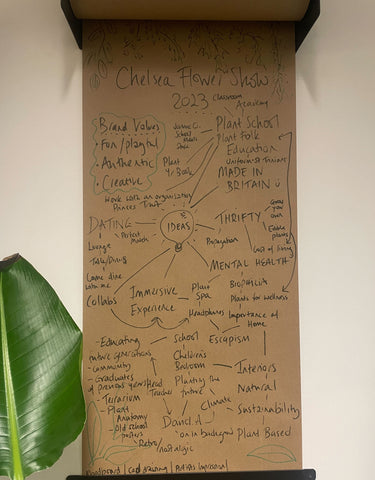 Chelsea Flower Show
2023
Classroom
Academy
Brand Values
• Fun/playful
• Authentic
• Creative
School
Plant School
Plant Folk
Education
Uniform
MADE IN
BRITAIN
Plant
Yr Book
Work with an organisation
Princes Trust
IDEAS
DATING
Perfect
match
Lounge
Come dine
with me
Collabs
THRIFTY
Grow
your
own
Edible
plants
Propagation
Cost of living
MENTAL HEALTH
Biophilia
Plants for wellness
Immersive
Experience
Plant
Spa
Headphones
Importance of
Home
Escapism
- Educating
future generations
- Community
- Graduates
of previous years
School
Childrens
Ballroom
Head
Teacher
Planting the
future
Interiors
Natural
Climate
Sustainability
Plant Based
- Terrarium
- Plant
Anatomy
- Old school
posters
Retro/
nostalgic
on in background